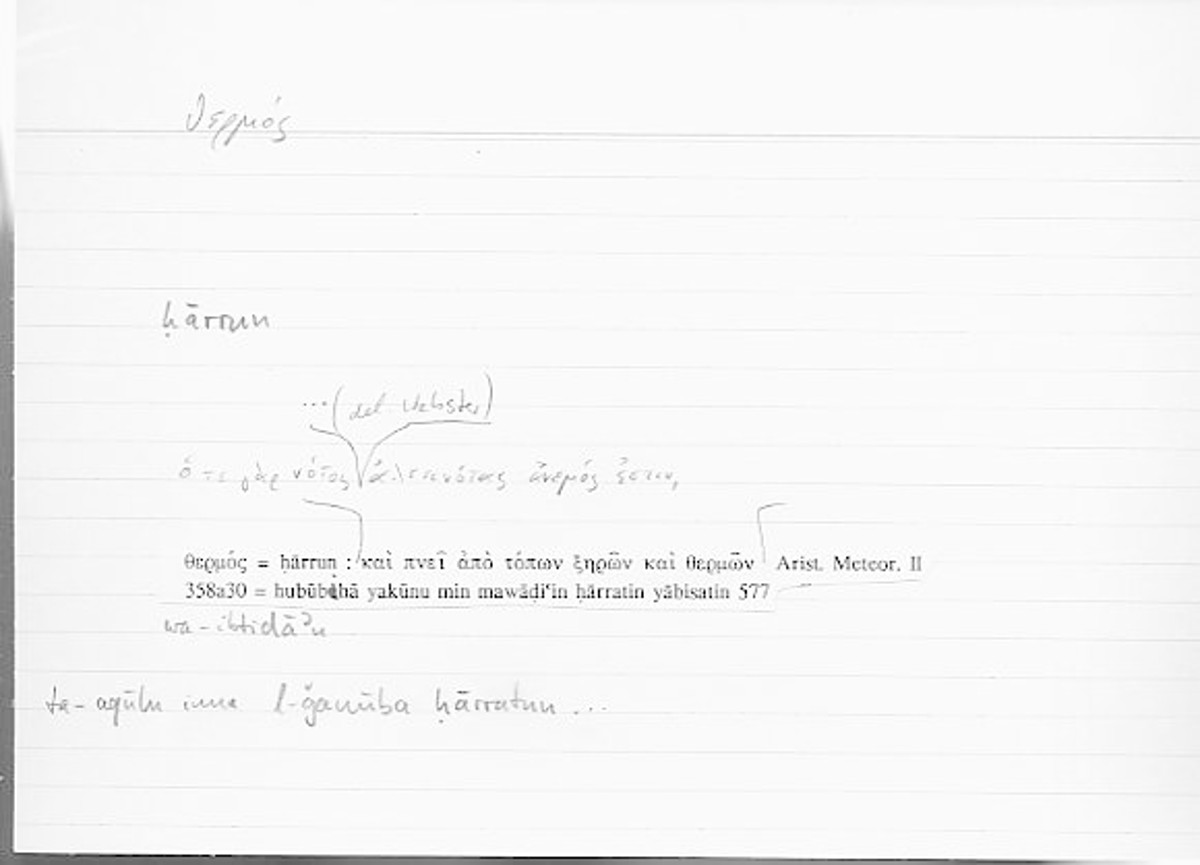 θερμός
ḥārrun
...(del Webster)
ὅ τε γὰρ νότος ἀλεεινότατος ἄνεμός ἐστιν,
θερμός = ḥārrun : καὶ πνεῖ ἀπὸ τόπων ξηρῶν καὶ θερμῶν Arist. Meteor. II
358a30 = hubūbuhā yakūnu min mawāḍiʿin ḥārratin yābisatin 577
wa-ibtidāʾu
fa-aqūlu inna l-ǧanūba ḥārratun ...